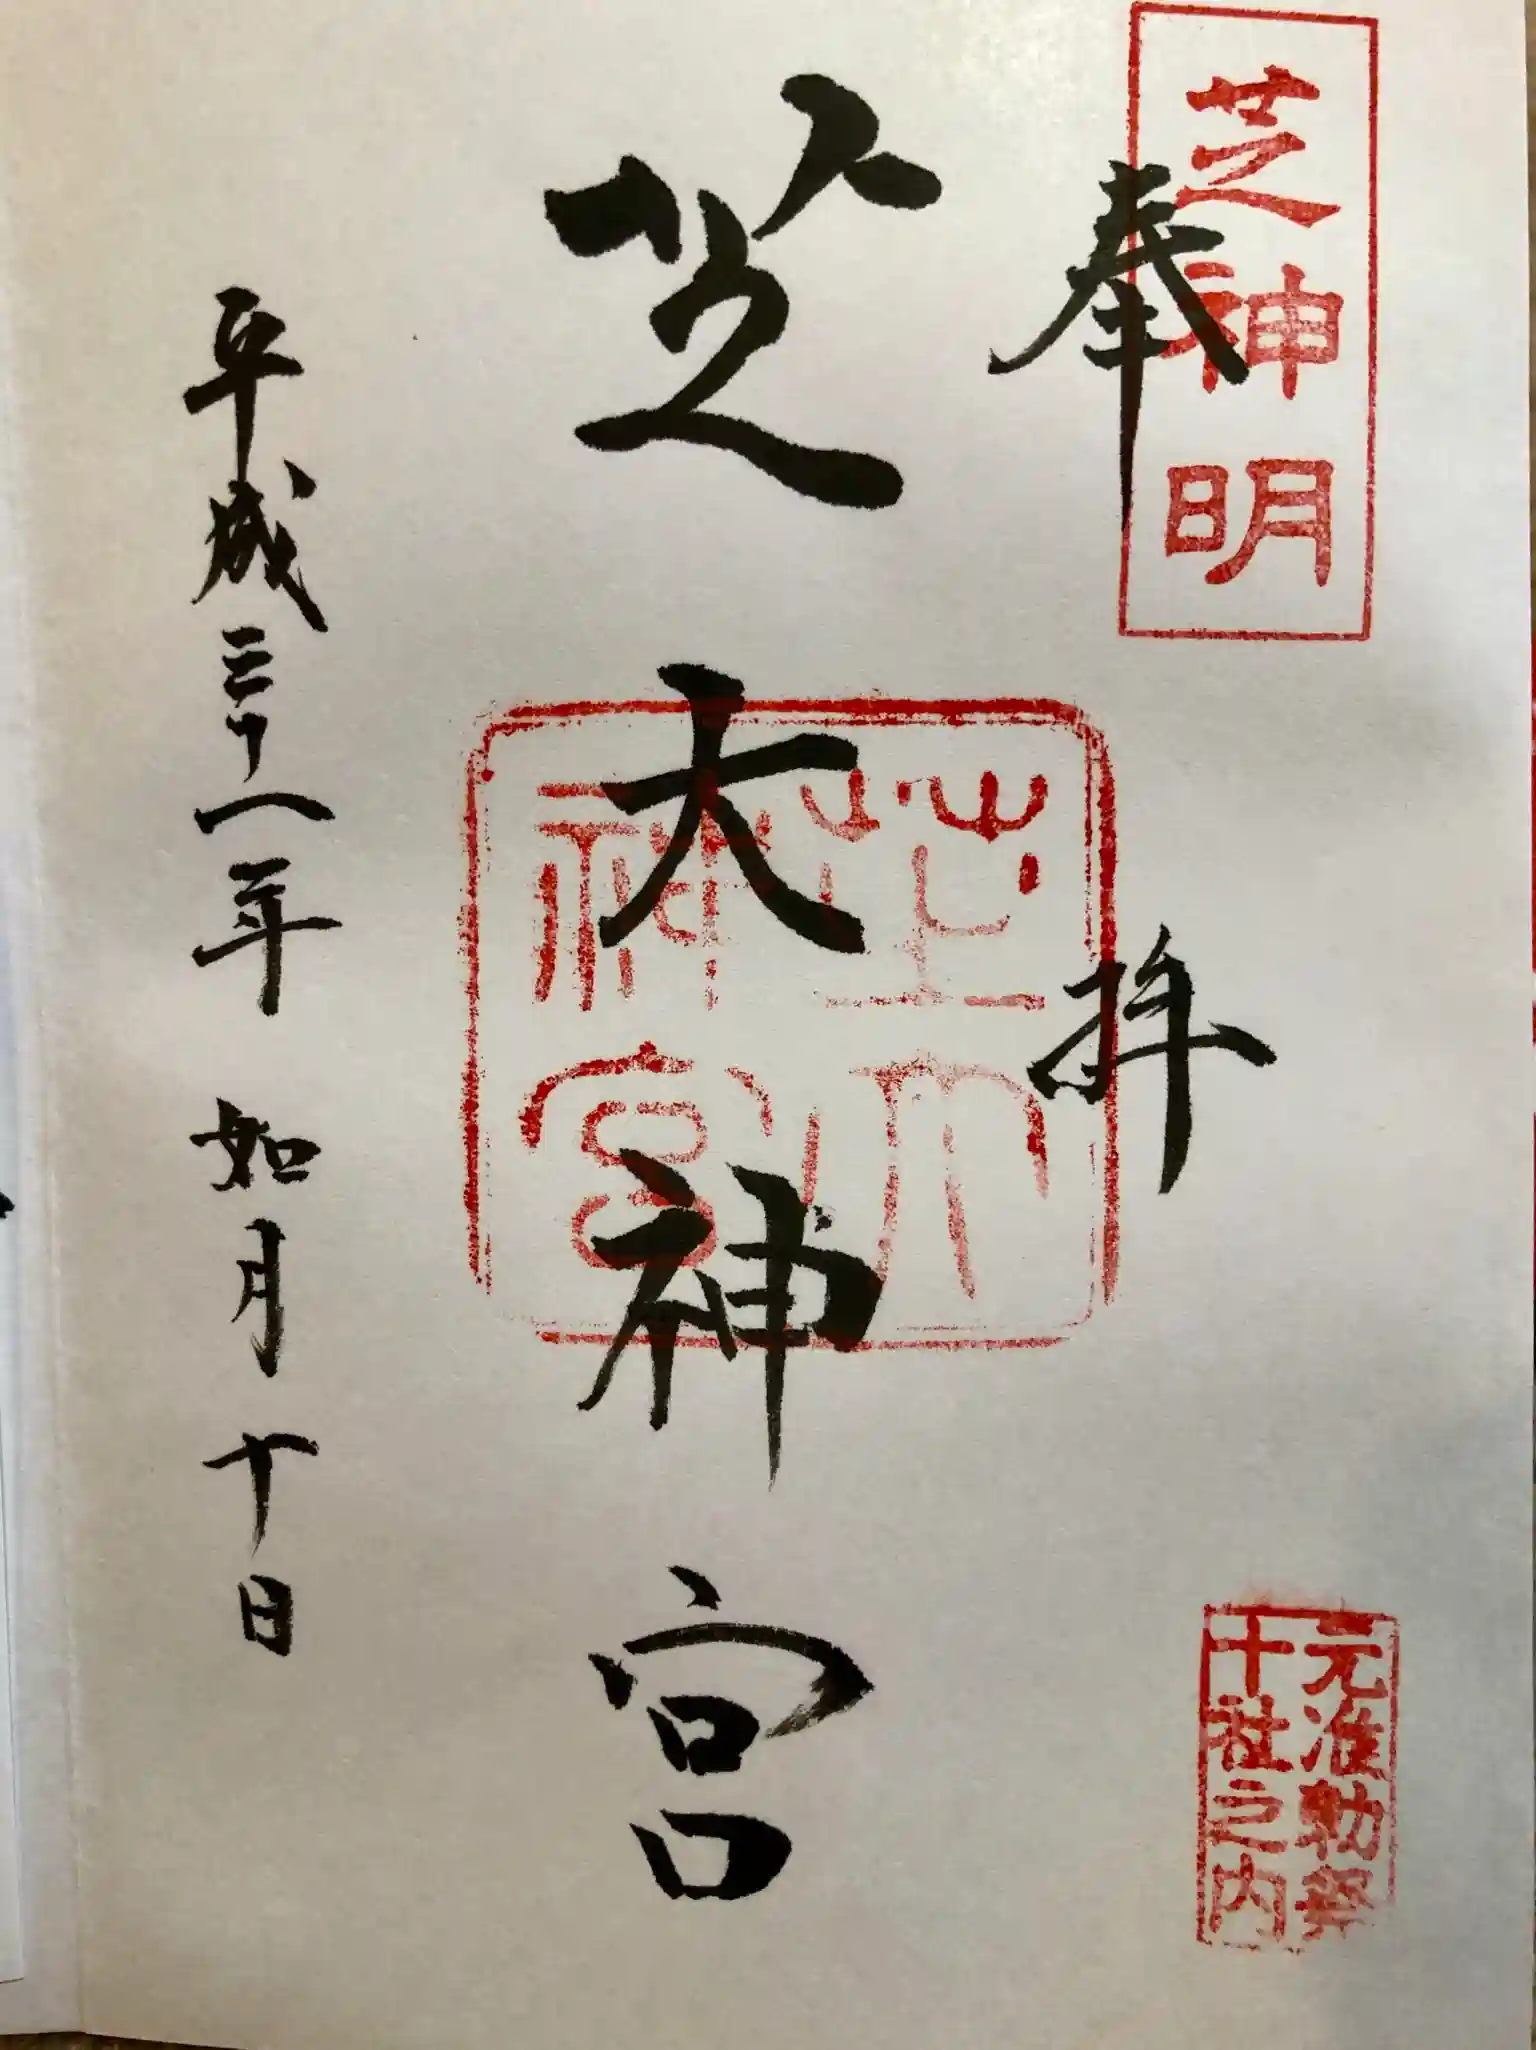 芝神明
奉拝
元准勅祭
十社之内
芝大神宮
芝大
神宮
平成三十一年 如月十日